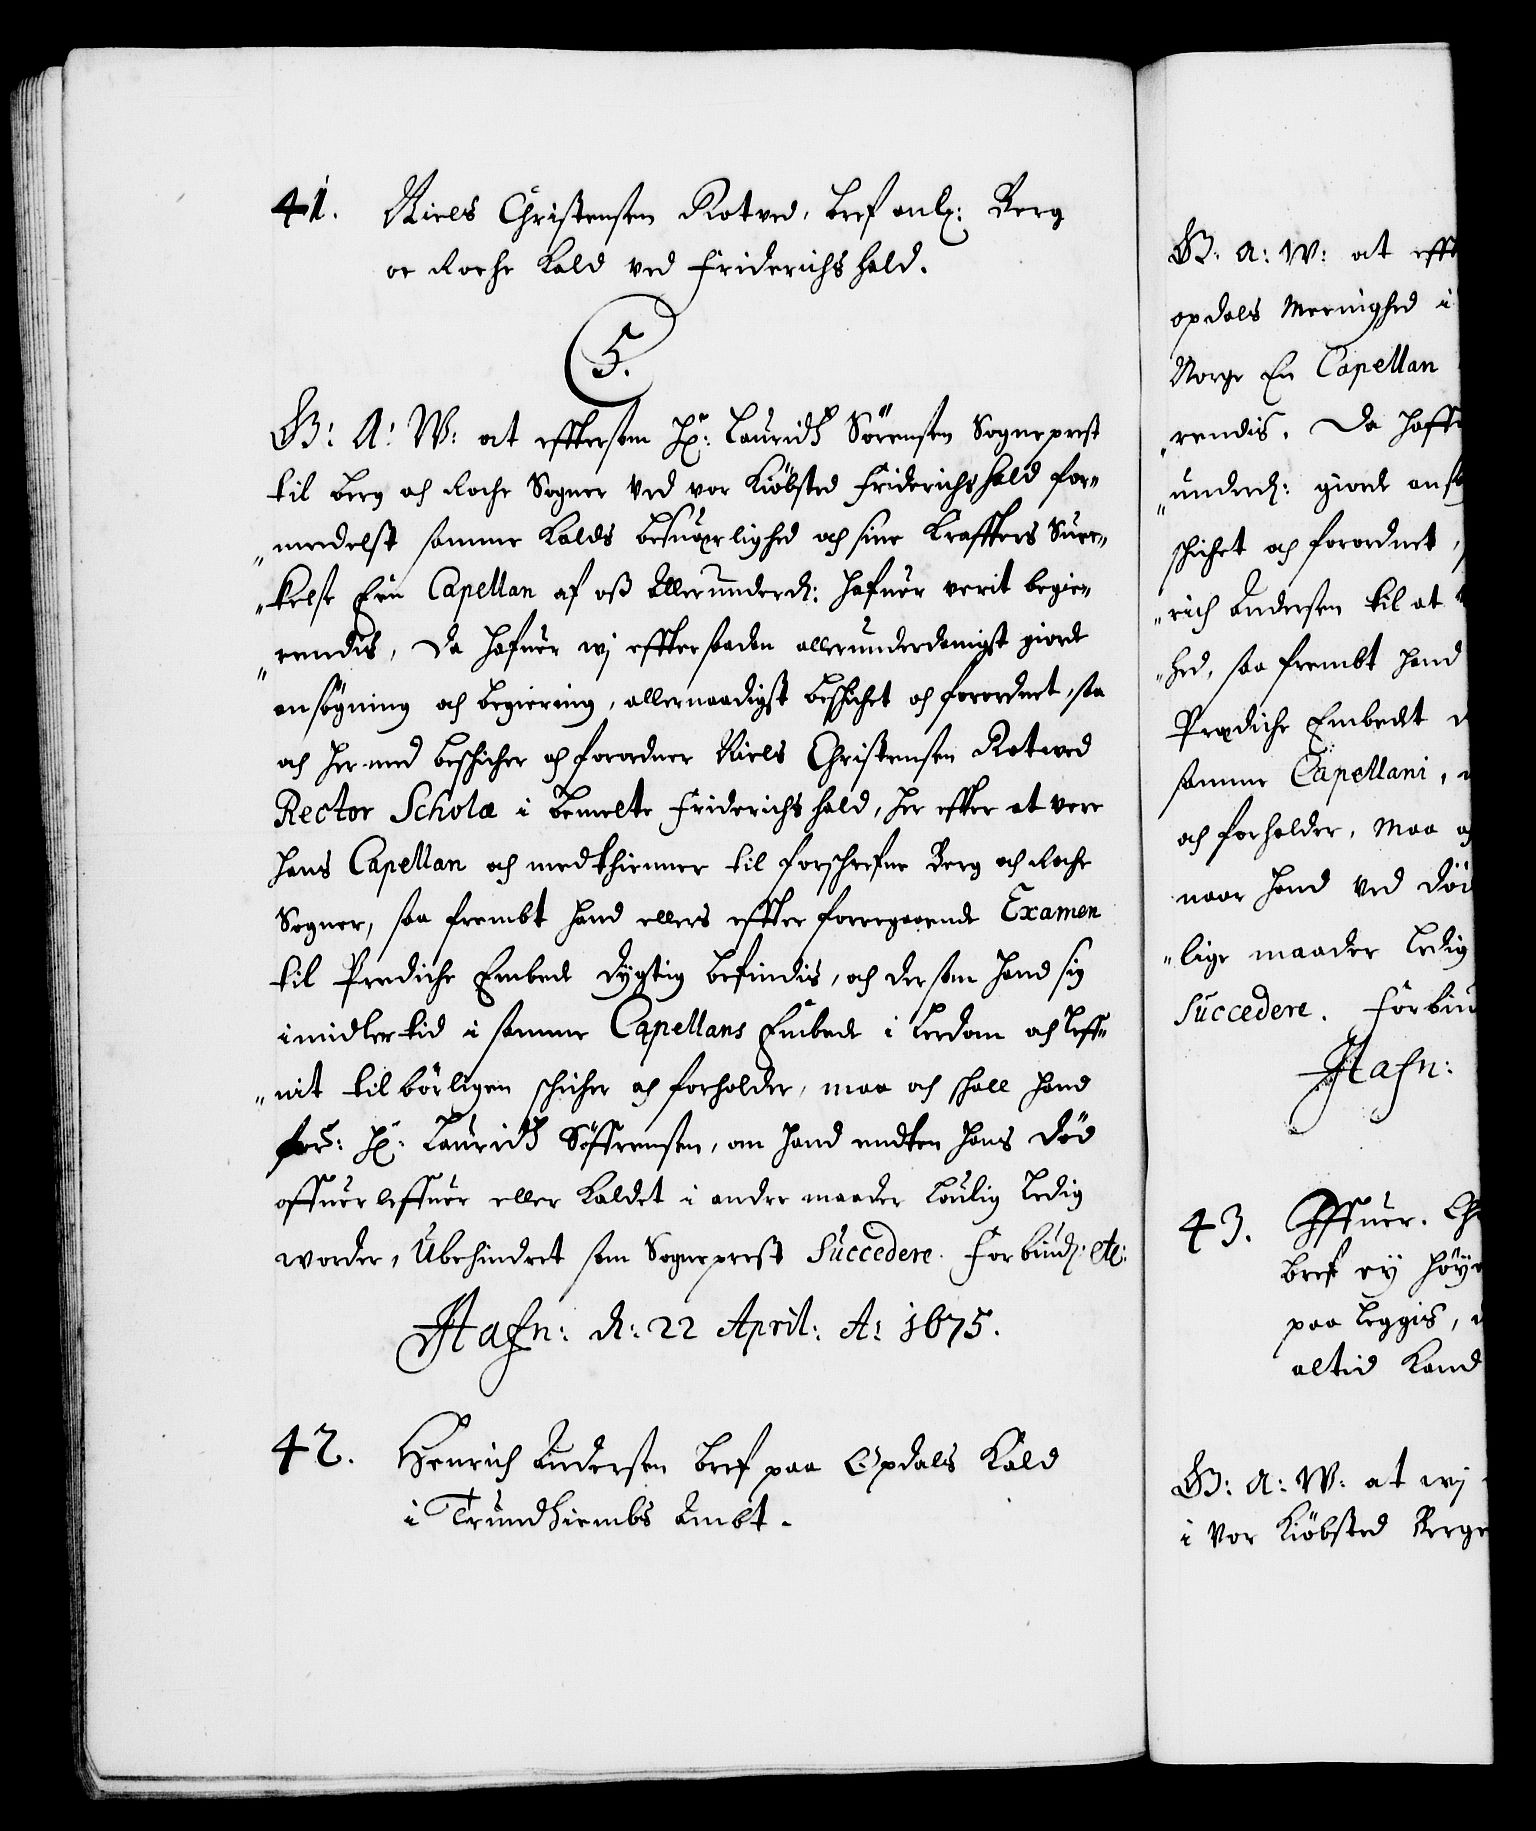 41. Niels Christensen Rotved, bref anl: Berg
oc Roche Kald ved Friderichshald.
5.
G: A: W: at efftersom Hr: Lauridtz Sörensen Sogneprest
til Berg och Roche Sogner ved vor Kiöbsted Friderichshald for-
"medelst samme Kalds besuærlighed och sine Kraffters Suec-
"kelse Een Capellan af oss allerunderd: hafuer verit begie-
"rendis, Da hafuer wj effter saadan allerunderdanigst giorde
ansögning och begiering, allernaadigst beschichet och forordnet, saa
och her med beschicher och forordner Niels Christensen Rotved
Rector Scholæ i bemelte Friderichshald, her effter at vere
hans Capellan och medthienner til forschrefne Berg och Roche
Sogner, saa frembt hand ellers effter foregaaende Examen
til Prediche Embede dygtig befindis, och der som hand sig
imidlertid i samme Capellans Embede i Lerdom och Leff-
"nit tilbörligen schicher och forholder, maa och schall hand
for: Hr: Lauridtz Söffrensen, om hand endten hans död
offuerleffuer eller Kaldet i andre maader Loulig Ledig
worder, Ubehindret som Sogneprest Succedere. Forbiud: etc:
Hafn: d: 22 April: A: 1675.
42. Henrich Andersen bref paa Opdals Kald
i Trundhiembs Ambt.
G: A: W: at efft
opdals Meenighed i
Norge En Capellan
"rendis. Da haff
"underd: giorde ans
schichet och forordnet,
"rich Andersen til at
"hed, saa frembt hand
Prædiche Embedt
samme Capellani,
och forholder, maa
naar hand ved död
"lige maader Ledig
Succedere. Forbiu
Hafn:
43. Offuer. Ch
bref ey höye
paa Leggis,
altid Kand
G: A: W: at wj
i vor Kiöbsted Berge